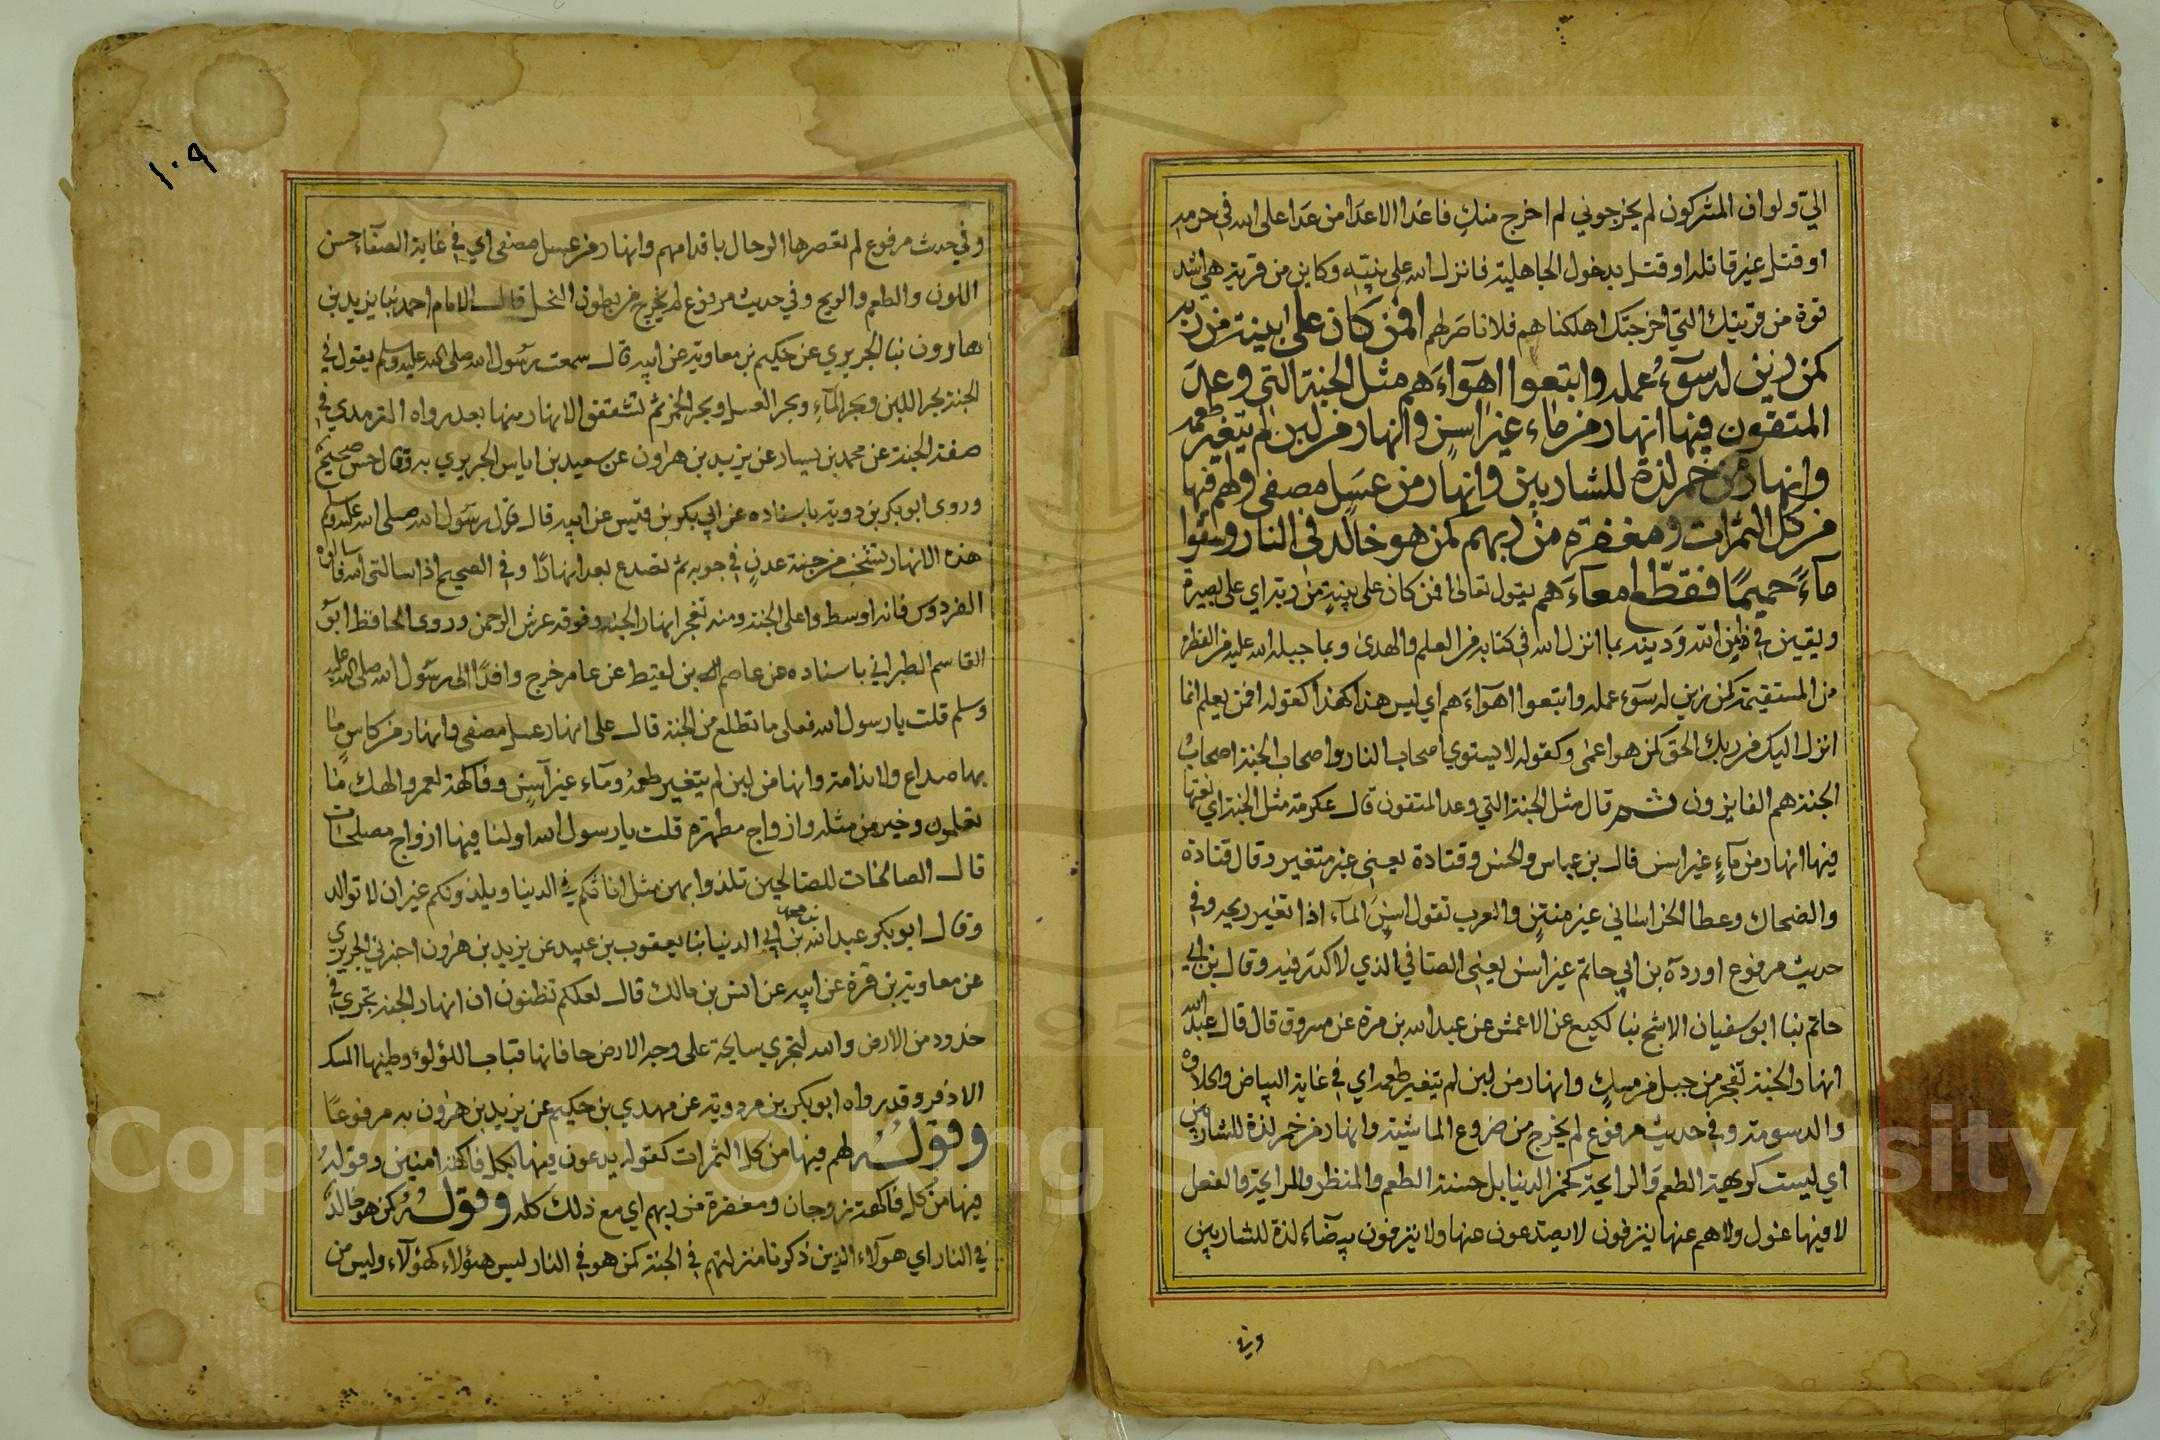 اليّ ولو ان المشركون لم يخرجوني لم اخرج منك فاعدا الاعدا من عدا على الله في حرمه
او قتل غير قاتله او قتل بدخول الجاهلية فانزل الله على نبيه وكاين من قرية هي اشد
قوة من قريتك التي اخرجتك اهلكناهم فلا ناصر لهم افمن كان على بينة من ربه
كمن زين له سوٓء عمله وابتعوا اهوآءهم مثل الجنة التي وعد
المتقون فيها انهار من ماء غير اسن وانهار من لبن لم يتغير طعمه
وانهار من خمر لذة للشاربين وانهار من عسل مصفى ولهم فيها
من كل الثمرات ومغفرة من ربهم كمن هو خالد في النار وسقوا
مآءً حميمًا فقطّع امعآءهم يقول تعالى افمن كان على بينةٍ من ربه اي على بصيرة
ويقين في دين الله ودينه بما انزل الله في كتابه من العلم والهدى وبما جبله الله عليه من الفطرة
من المستقيمة كمن زين له سوٓء عمله وابتعوا اهوآءهم اي ليس هذا كهذا كقوله افمن يعلم انما
انزل اليك من ربك الحق كمن هو اعمى وكقوله لا يستوي اصحاب النار واصحاب الجنة اصحابُ
الجنة هم الفايزون ثم قال مثل الجنة التي وعد المتقون قال عكرمة مثل الجنة اي نعتها
فيها انهار من مآءٍ غير اسن قال بن عباس والحسن وقتادة يعني غير متغير وقال قتادة
والضحاك وعطا الخراساني غير منتنٍ والعرب تقول اسن المآء اذا تغير ريحه وفي
حديث مرفوع اوردة بن ابي حاتم غير اسن يعني الصافي الذي لا كدر فيه وقال بن ابي
حاتم بنا ابو سفيان الاشج نبا وكيع عن الاعمش عن عبد الله بن مرة عن مسروق قال قال عبد الله
انهار الجنة تفجر من جبل من مسكٍ وانهار من لبن لم يتغير طعمه اي في غاية البياض والحلاوه
والدسومة وفي حديث مرفوع لم يخرج من ضروع الماشية وانهار من خمر لذة للشاربين
اي ليست كريهة الطعم والرايحة كخمر الدنيا بل حسنة الطعم والمنظر والرايحة والفعل
لا فيها غول ولا هم عنها ينزفون لا يصدعون عنها ولا ينزفون بيضآء لذة للشاربين
وفي
١٠٩
وفي حدث مرفوع لم تعصرها الرحال باقدامهم وانهار من عسل مصفى اي في غاية الصفآء حسن
اللون والطعم والريح وفي حديث مرفوع لم يخرج من بطون النحل قال الامام احمد نبا يزيد بن
هارون نبا الجريري عن حكيم بن معاوية عن ابيه قال سمعت رسول الله صلى الله عليه وسلم يقول في
الجنة بحر اللبن وبحر المآء وبحر العسل وبحر الخمر ثم تشقق الانهار منها بعد رواه الترمدي في
صفة الجنة عن محمد بن بسار عن يزيد بن هرون عن سعيد بن اياس الجريري به وقال حسن صحيح
وروى ابو بكر بن دوية باسناده عن ابي بكر بن قيس عن ابيه قال قال رسول الله صلى الله عليه وسلم
هذه الانهار تشخب من جنة عدنٍ في جوبة ثم تصدع بعد انهارًا وفي الصحيح اذا سالتم الله فاسالوه
الفردوس فانه اوسط واعلى الجنة ومنه تفجر انهار الجنة وفوقه عرش الرحمن وروى الحافظ ابو
القاسم الطبراني باسناده عن عاصم بن لقيط عن عامر خرج وافدًا الى رسول الله صلى الله عليه
وسلم قلت يا رسول الله فعلى ما تطلع من الجنة قال على انهار عسل مصفى وانهار من كاسٍ ما
بها صداع ولا نذامة وانها من لبن لم يتغير طعمه ومآء غير آسنٍ وفاكهة لعمر والهك ما
تعلمون وخير من مثله وازواج مطهرة قلت يا رسول الله اولنا فيها ازواج مصلحات
قال الصالحات للصالحين تلذوا بهن مثل اناثكم في الدنيا ويلذونكم غير ان لا توالد
وقال ابو بكر عبد الله بن محمد بن ابي الدنيا بنا يعقوب بن عبيد عن يزيد بن هرون اخبرني الجريري
عن معاوية بن قرة عن ابيه عن انس بن مالك قال لعلكم تظنون ان انهار الجنة تجري في
خدود من الارض والله لتجري سايحة على وجه الارض حافاتها قباب اللؤلوء وطينها المسك
الاذفر وقد رواه ابو بكر بن مردوية عن مهدي بن حكيم عن يزيد بن هرون به مرفوعًا
وقولُه لهم فيها من كل الثمرات كقوله يدعون فيها بكل فاكهة امنين وقولهُ
فيها من كل فاكهة زوجان ومغفرة من ربهم اي مع ذلك كله وقولُه كمن هو خالد
في النار اي هوآلاء الذين ذكرنا منزلتهم في الجنة كمن هو في النار ليس هؤلاء كهؤلآء وليس من
Copyright © King Saud University